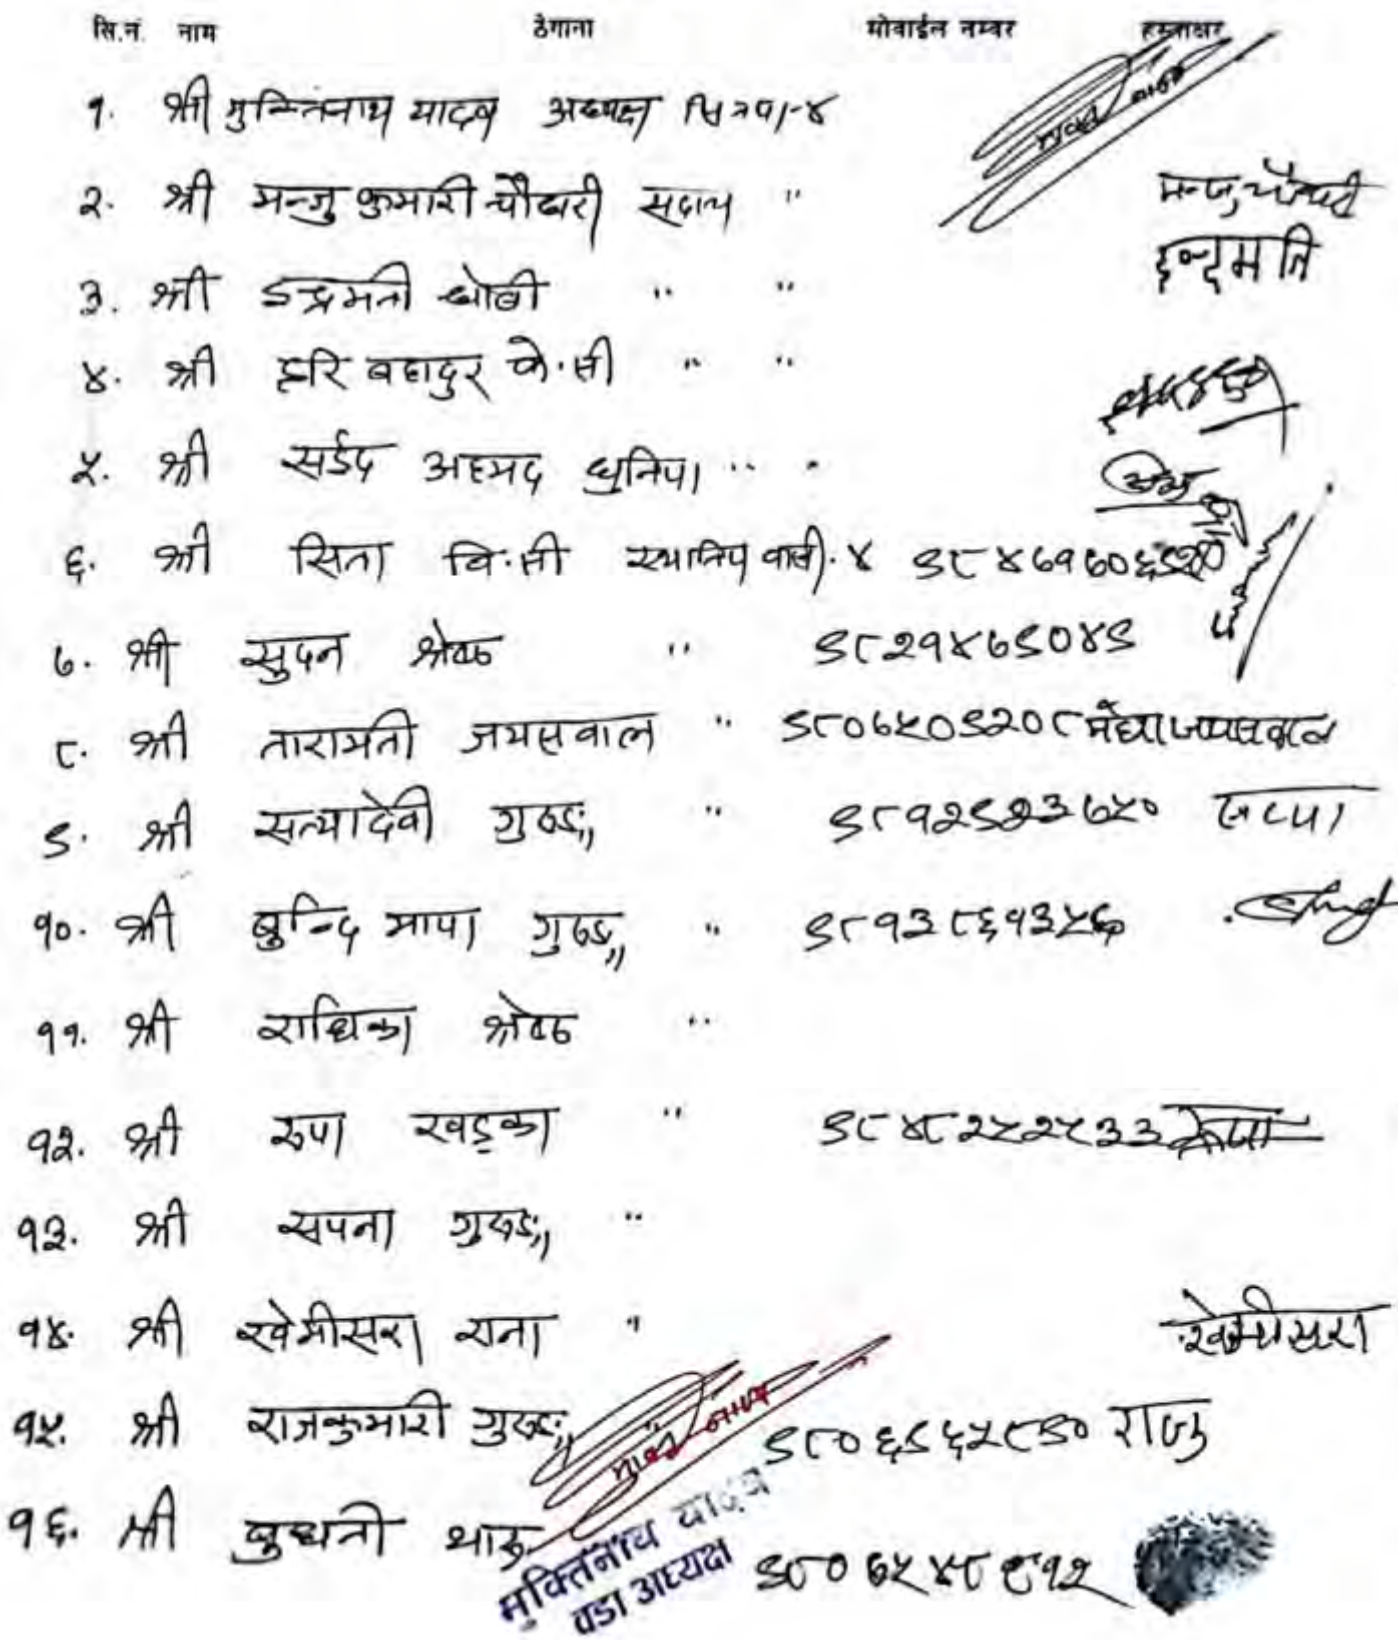 सि.नं. नाम ठेगाना मोवाईल नम्वर हस्ताक्षर
१. श्री मुक्तिनाथ यादव अध्यक्ष सि.न.पा-४
२. श्री मन्जु कुमारी चौधरी सदस्य " मन्जु चौधरी
३. श्री इन्द्रमती धोबी " " इन्द्रमति
४. श्री हरि बहादुर के.सी " "
५. श्री सईद अहमद धुनिया " "
६. श्री सिता वि.सी स्थानिय वासी.४
७. श्री सुदन श्रेष्ठ " ९८२१४७९०४९
८. श्री तारामती जयसवाल " ९८०७५०९२०८
९. श्री सत्यादेवी गुरुङ " ९८१२९२३७५० सत्या
१०. श्री बुन्दि माया गुरुङ " ९८१३८६१३५६
११. श्री राधिका श्रेष्ठ "
१२. श्री रुपा खड्का " ९८४८२५२५३३ रूपा
१३. श्री सपना गुरुङ "
१४. श्री खेमीसरा राना " खेमीसरा
१५. श्री राजकुमारी गुरुङ ९८०६९६५८९० राजु
१६. श्री बुधनी थारु
मुक्तिनाथ यादव
वडा अध्यक्ष